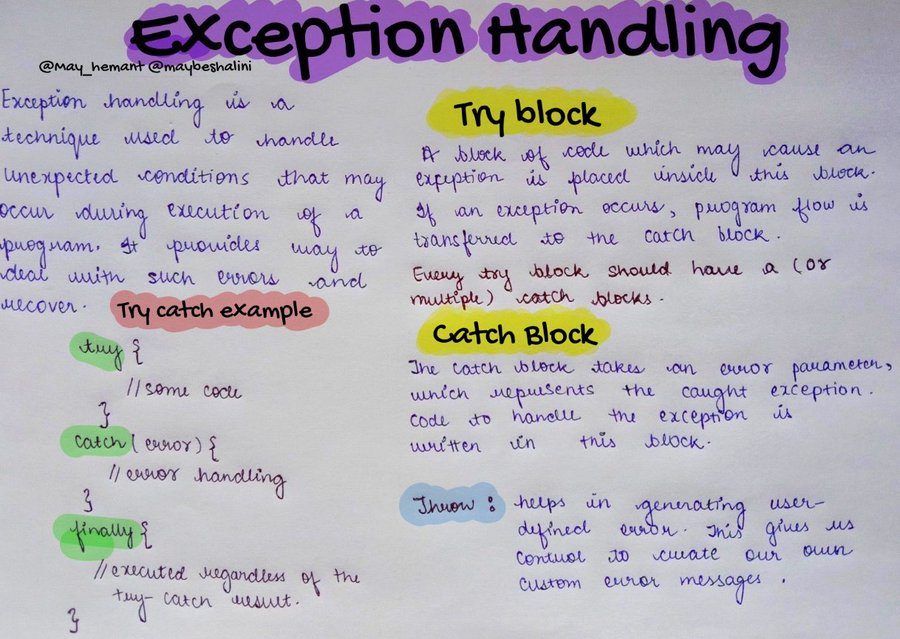 Exception Handling
@May_hemant @maybeshalini
Exception handling is a
technique used to handle
unexpected conditions that may
occur during execution of a
program. It provides way to
deal with such errors and
recover.
Try catch example
try {
//some code
}
catch (error) {
// error handling
}
finally {
//executed regardless of the
try-catch result.
}
Try block
A block of code which may cause an
exception is placed inside this block.
If an exception occurs, program flow is
transferred to the catch block.
Every try block should have a (or
multiple) catch blocks.
Catch Block
The catch block takes an error parameter,
which represents the caught exception.
Code to handle the exception is
written in this block.
Throw : helps in generating user-
defined error. This gives us
control to create our own
custom error messages.